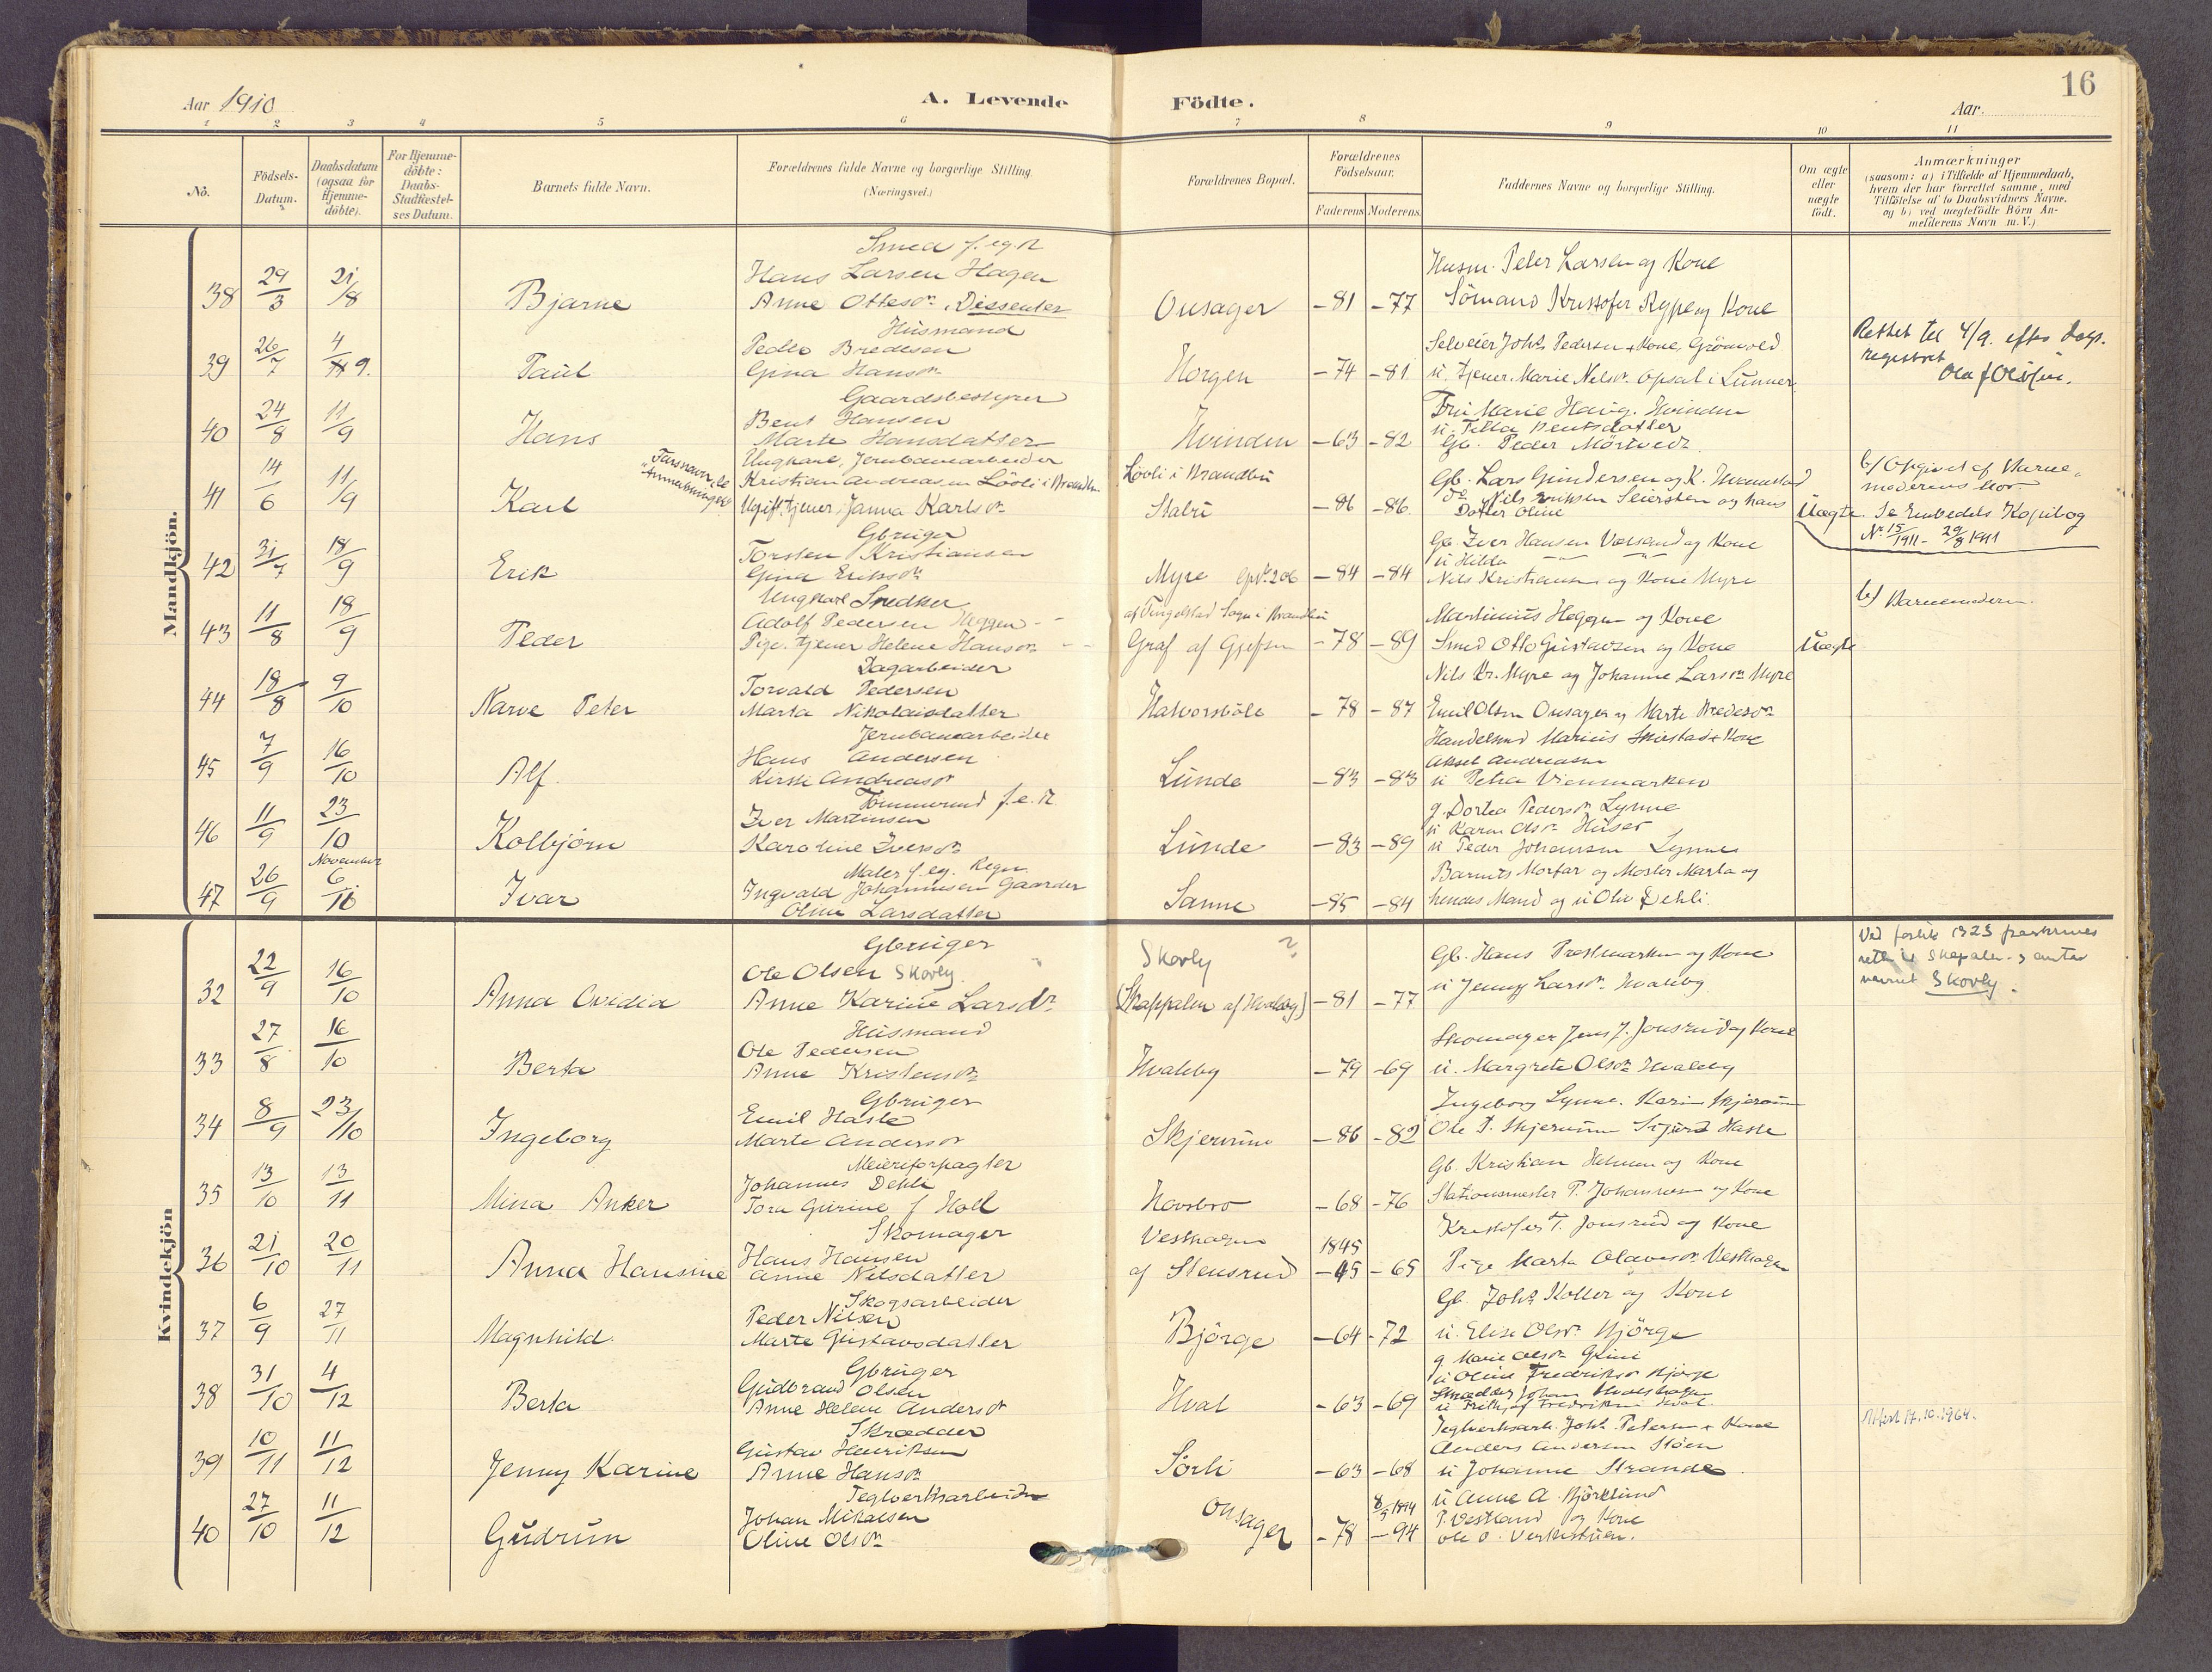 16
Aar 1910
A. Levende Födte.
Aar.
1 2 3 4 5 6 7 8 9 10 11
No.
Födsels-Datum.
Daabsdatum (ogsaa for Hjemme-döbte).
For Hjemme-döbte: Daabs-Stadfæstel-ses Datum.
Barnets fulde Navn.
Forældrenes fulde Navne og borgerlige Stilling.
(Næringsvei.)
Forældrenes Bopæl.
Forældrenes Födselsaar.
Faderens Moderens
Faddernes Navne og borgerlige Stilling.
Om ægte eller uægte födt.
Anmærkninger
(saasom: a) i Tilfælde af Hjemmedaab,
hvem der har forrettet samme, med
Tilföielse af to Daabsvidners Navne.
og b) ved uægtefödte Börn An-
melderens Navn m. V.)
Mandkjön.
Smed f. eg. R
38 29/3 21/8 Bjarne Hans Larsen Hagen
Anne Ottesdr. Dissenter Onsager -81 -77
Husm. Peter Larsen og Kone
Sömand Kristofer Rype og Kone
Husmand
39 26/7 4/9. Paul Peder Bredesen
Gina Hansdr. Horgen -74 -81
Selveier Johs Pedersen + Kone, Grönvold
u. tjener Marie Nelsdr. Opsal i Lunner
Rettet til 4/9. efter daps-
registret
Olaf Olsen.
Gaardsbestyrer
40 24/8 11/9 Hans Bent Hansen
Marte Hansdatter Hvinden -63 -82
Fru Marie Haug. Hvinden
u. Tilla Bentsdatter
Gb. Peder Mörtvedt
Ungkarl, Jernbanearbeider
41 14/6 11/9 Karl Kristian Andreasen Lövli i Brandbu
Ugift tjener, Janna Karlsdr. Lövli i Brandbu
Stabri -86 -86
Gb. Lars Gundersen og K. Hvamstad
do Nils Eriksen Seiersten og hans
Datter Oline
Uægte
b/ Opgivet af Barne-
moderens Mor.
Se Embedets Kopibog
No 15/1911 - 29/8 1911
Gbruger
42 31/7 18/9 Erik Torsten Kristiansen
Gina Eriksdr. Myre -84 -84
Gb. Iver Hansen Volsand og Kone
u Hilda
Nils Kristiansen og Kone Myre
Ungkarl Snedker
43 11/8 18/9 Peder Adolf Pedersen Heggen
Pige. tjener Helene Hansdr.
af Tingelstad Sogn i Brandbu
Graf af Gjefsen -78 -89
Martinius Heggen og Kone
Smed Otto Gustavsen og Kone Uægte
b/ Barnemoderen.
Dagarbeider
44 18/8 9/10 Narve Peter Torvald Pedersen
Marta Nikolaisdatter Halvorsböle -78 -87
Nils Kr. Myre og Johanne Larsdr. Myre
Emil Olsen Onsager og Marte Bredesdr.
Jernbanearbeider
45 7/9 16/10 Alf. Hans Andersen
Kirsti Andreasdr. Lunde -83 -83
Handelsmd Marius Skiestad + Kone
Aksel Andreasen
u Petra Vienmarken
Tömmermd f. e. R.
46 11/9 23/10 Kolbjörn Iver Martinsen
Karoline Iversdr. Lunde -83 -89
g. Dortea Pedersdr. Lynne
u Karen Olsdr. Huser
u Peder Johansen Lynne
Maler f. eg. Regn.
November
47 26/9 6/10 Ivar Ingvald Johannesen Gaarder
Oline Larsdatter Sanne -85 -84
Barnets Morfar og Moster Marta og
hendes Mand og u Oliv Dehli.
Kvindekjön
Gbruger
32 22/9 16/10 Anna Ovidia Ole Olsen Skovly
Anne Karine Larsdr. Skovly ?
(Skappalen af Hvaleby) -81 -77
Gb. Hans Prestmarken og Kone
u Jenny Larsdr. Hvaleby.
nevnt Skovly.
Husmand
33 27/8 16/10 Berta Ole Pedersen
Anne Kristensdr. Hvaleby -79 -69
Skomager Jens J. Jonsrud og Kone
u. Margrete Olsdr. Hvaleby
Gbruger
34 8/9 23/10 Ingeborg Emil Hasle
Marte Andersdr. Skjerven -86 -82
Ingeborg Lynne. Karin Skjerven
Ole P. Skjerven Sigurd Hasle
Meieriforpagter
35 13/10 13/11 Mina Anker Johannes Dehli
Tora Gurine f Holl Hovsbro -68 -76
Gb. Kristian Helmen og Kone
Stationsmester P. Johannesen og Kone
Skomager
36 21/10 20/11 Anna Hansine Hans Hansen
Anne Nilsdatter Vesthagen
af Stensrud 1845 -45 -65
Kristofer T. Jonsrud og Kone
Pige Marta Olavesdr. Vesthagen
Skogsarbeider
37 6/9 27/11 Magnhild. Peder Nilsen
Marte Gustavsdatter Björge -64 -72
Gb. Johs Koller og Kone
u. Elise Olsdr. Björge
Gbruger
38 31/10 4/12 Berta Gudbrand Olsen
Anne Helene Andersdr. Hval -63 -69
g Marie Olsdr. Grini
u Oline Fredriksdr Björge
u Fritjof Fredriksen Hval.
Skrædder
39 10/11 11/12 Jenny Karine Gustav Henriksen
Anne Hansdr. Sörli -63 -68
Teglverksarb. Johs. Petersen + Kone
Anders Andersen Stöen
u Johanne Strande.
Attest 17.10.1964.
Teglverksarbeider
40 27/10 11/12 Gudrun Johan Mikalsen
Oline Olsdr. Onsager -78 8/5 1894 -94
u Anne A. Björklund
P. Vestland og Kone
Ole O. Verkestuen.